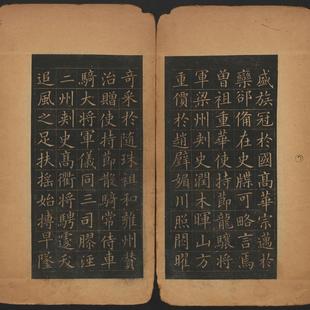 盛族冠於國高華宗邁於
欒郤備在史牒可略言焉
曾祖重華使持節龍驤將
軍梁州刾史潤木暉山方
重價於趙璧媚川照闕曜
奇采於隨珠祖和雍州贊
治贈使持節散騎常侍車
騎大將軍儀同三司膠涇
二州刾史髙衢將騁遽夭
追風之足扶搖始摶早墜